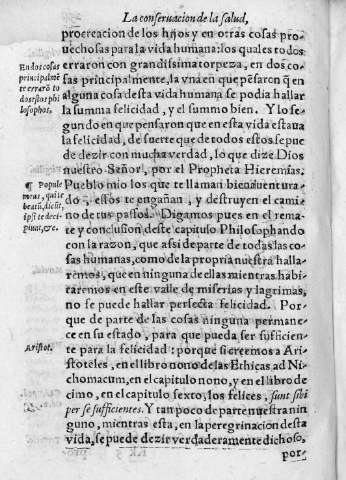 La conseruacion de la salud,
procreacion de los hijos y en otras cosas pro-
uechosas para la vida humana: los quales todos
erraron con grandissima torpeza, en dos co-
sas principalmente, la vna en que pẽsaron q̃ en
alguna cosa desta vida humana se podia hallar
la summa felicidad, y el summo bien. Y lo se-
gundo en que pensaron que en esta vida estaua
la felicidad, de suerte que de todos estos se pue
de dezir con mucha verdad, lo que dize Dios
nuestro Señor, por el Propheta Hieremias.
Pueblo mio los que te llaman bienauentura-
do, estos te engañan, y destruyen el cami-
no de tus passos. Digamos pues en el rema-
te y conclusion deste capitulo Philosophando
con la razon, que assi de parte de todas las co-
sas humanas, como de la propria nuestra halla-
remos, que en ninguna de ellas mientras habi-
taremos en este valle de miserias y lagrimas,
no se puede hallar perfecta felicidad. Por-
que de parte de las cosas ninguna permane-
ce en su estado, para que pueda ser sufficien-
te para la felicidad: porque si creemos a Ari-
stoteles, en el libro nono de las Ethicas ad Ni-
chomacum, en el capitulo nono, y en el libro de
cimo, en el capitulo sexto, los felices, sunt sibi
per se sufficientes. Y tan poco de parte nuestra nin
guno, mientras esta, en la peregrinacion desta
vida, se puede dezir verdaderamente dichoso,
por-
En dos cosas
principalmẽ
te errarõ to
dos estos phi
losophos.
¶ Popule
meus, qui te
beatũ, dicũt,
ipsi te deci-
piunt, &c.
Aristot.